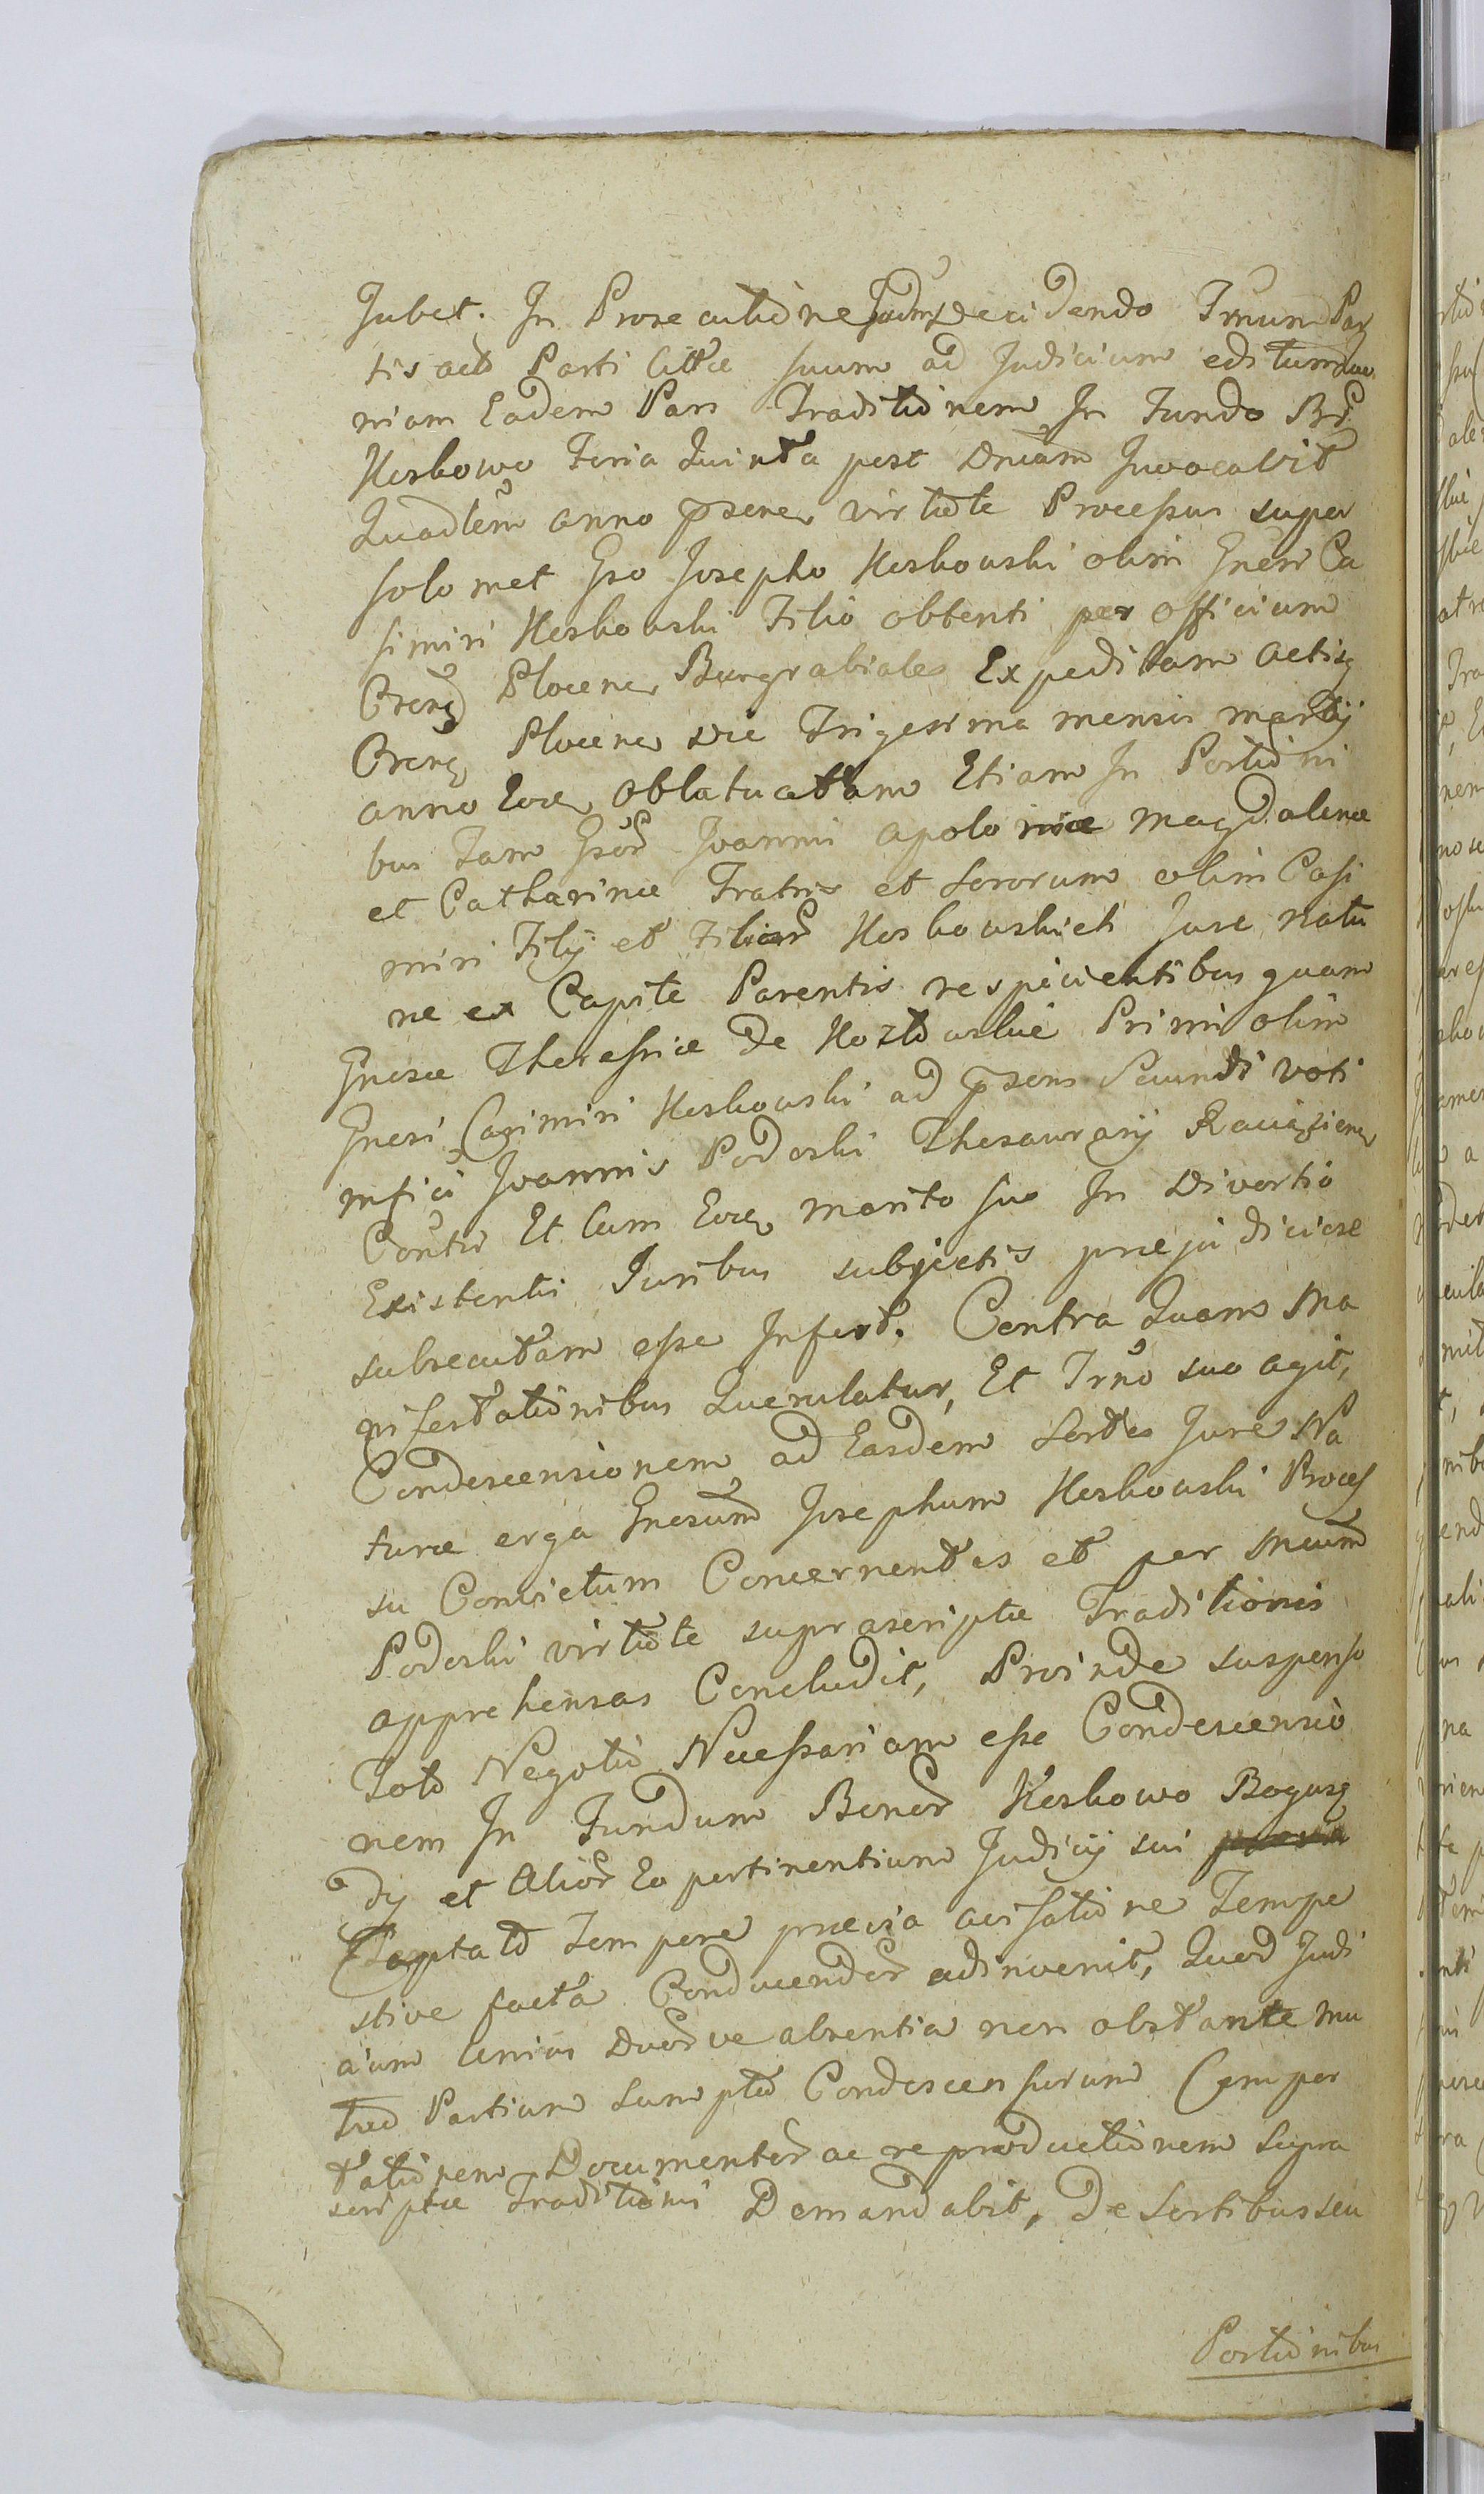 Jubet. In Prosecutione Judm Decidendo Trnum Par
tis act Parti Cittæ suum ad Judicium editum quo
niam Eadem Pars Traditionem In Fundo Br
Koskowo Feria Quinta post Dncam Invocavit
Quadlem anno psene virtute Processus super
solo met Gso Josepho Koskowski olim Gnesi Ca
simiri Koskowski Filio obtenti per officium
Crens Plocene Burgrabiales Expeditam actisq
Crens Plocene die Trigesima mensis martij
anno Eoce oblatucatam Etiam In Portioni
bus Tam Gsor Joannis Apoloniæ Magdalenæ
et Catharinæ Fratris et Sororum olim Casi
miri Filij et Filiar Koskowskich Jure natu
ræ ex Capite Parentis respicientibus quam
Gnesæ Theressiæ de Kozłowskie Primi olim
Gnesi Casimiri Koskowski ad psens Secundi voti
mfici Joannis Podoski Thesaurarij Raciąziene
Contis Et Cum Eoce marito suo In Divortio
Existentis Juribus subjectis præjudiciose
subsecutam esse Infert. Contra Quam Ma
nifestationibus Querulatur, Et Trno suo agit,
Condescensionem ad Easdem Sortes Jure Na
turæ erga Gnesum Josephum Koskowski Proces
su Convictum Concernentes et per Mcum
Podoski virtute suprascriptæ Traditionis
apprehensas Concludit, Proinde suspenso
Toto Negotio Necessariam esse Condescensio
nem In Fundum Bonor Koskowo Bogusz
dy et Alior Eo pertinentium Judicij sui
Captato Tempore prævia avisatione Tempe
stive facta Conducendor adinvenit, Quod Judi
cium Unius Duorve absentia non obstante mu
tuo Partium Sumptu Condescensurum Compor
tationem Documentor ac reproductionem Supra
scriptæ Traditionis Demandabit, De Sortibus seu
Portionibus